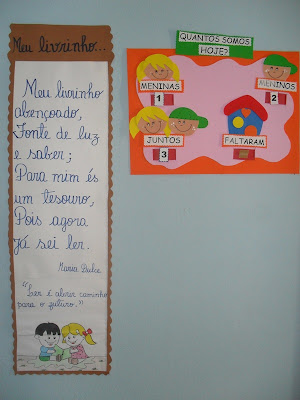 Meu livrinho...
Meu livrinho
abençoado,
Fonte de luz
e saber;
Para mim és
um tesouro,
Pois agora
já sei ler.
Maria Dulce
"Ler é abrir caminho
para o futuro."
QUANTOS SOMOS
HOJE?
MENINAS
1
MENINOS
2
JUNTOS
3
FALTARAM